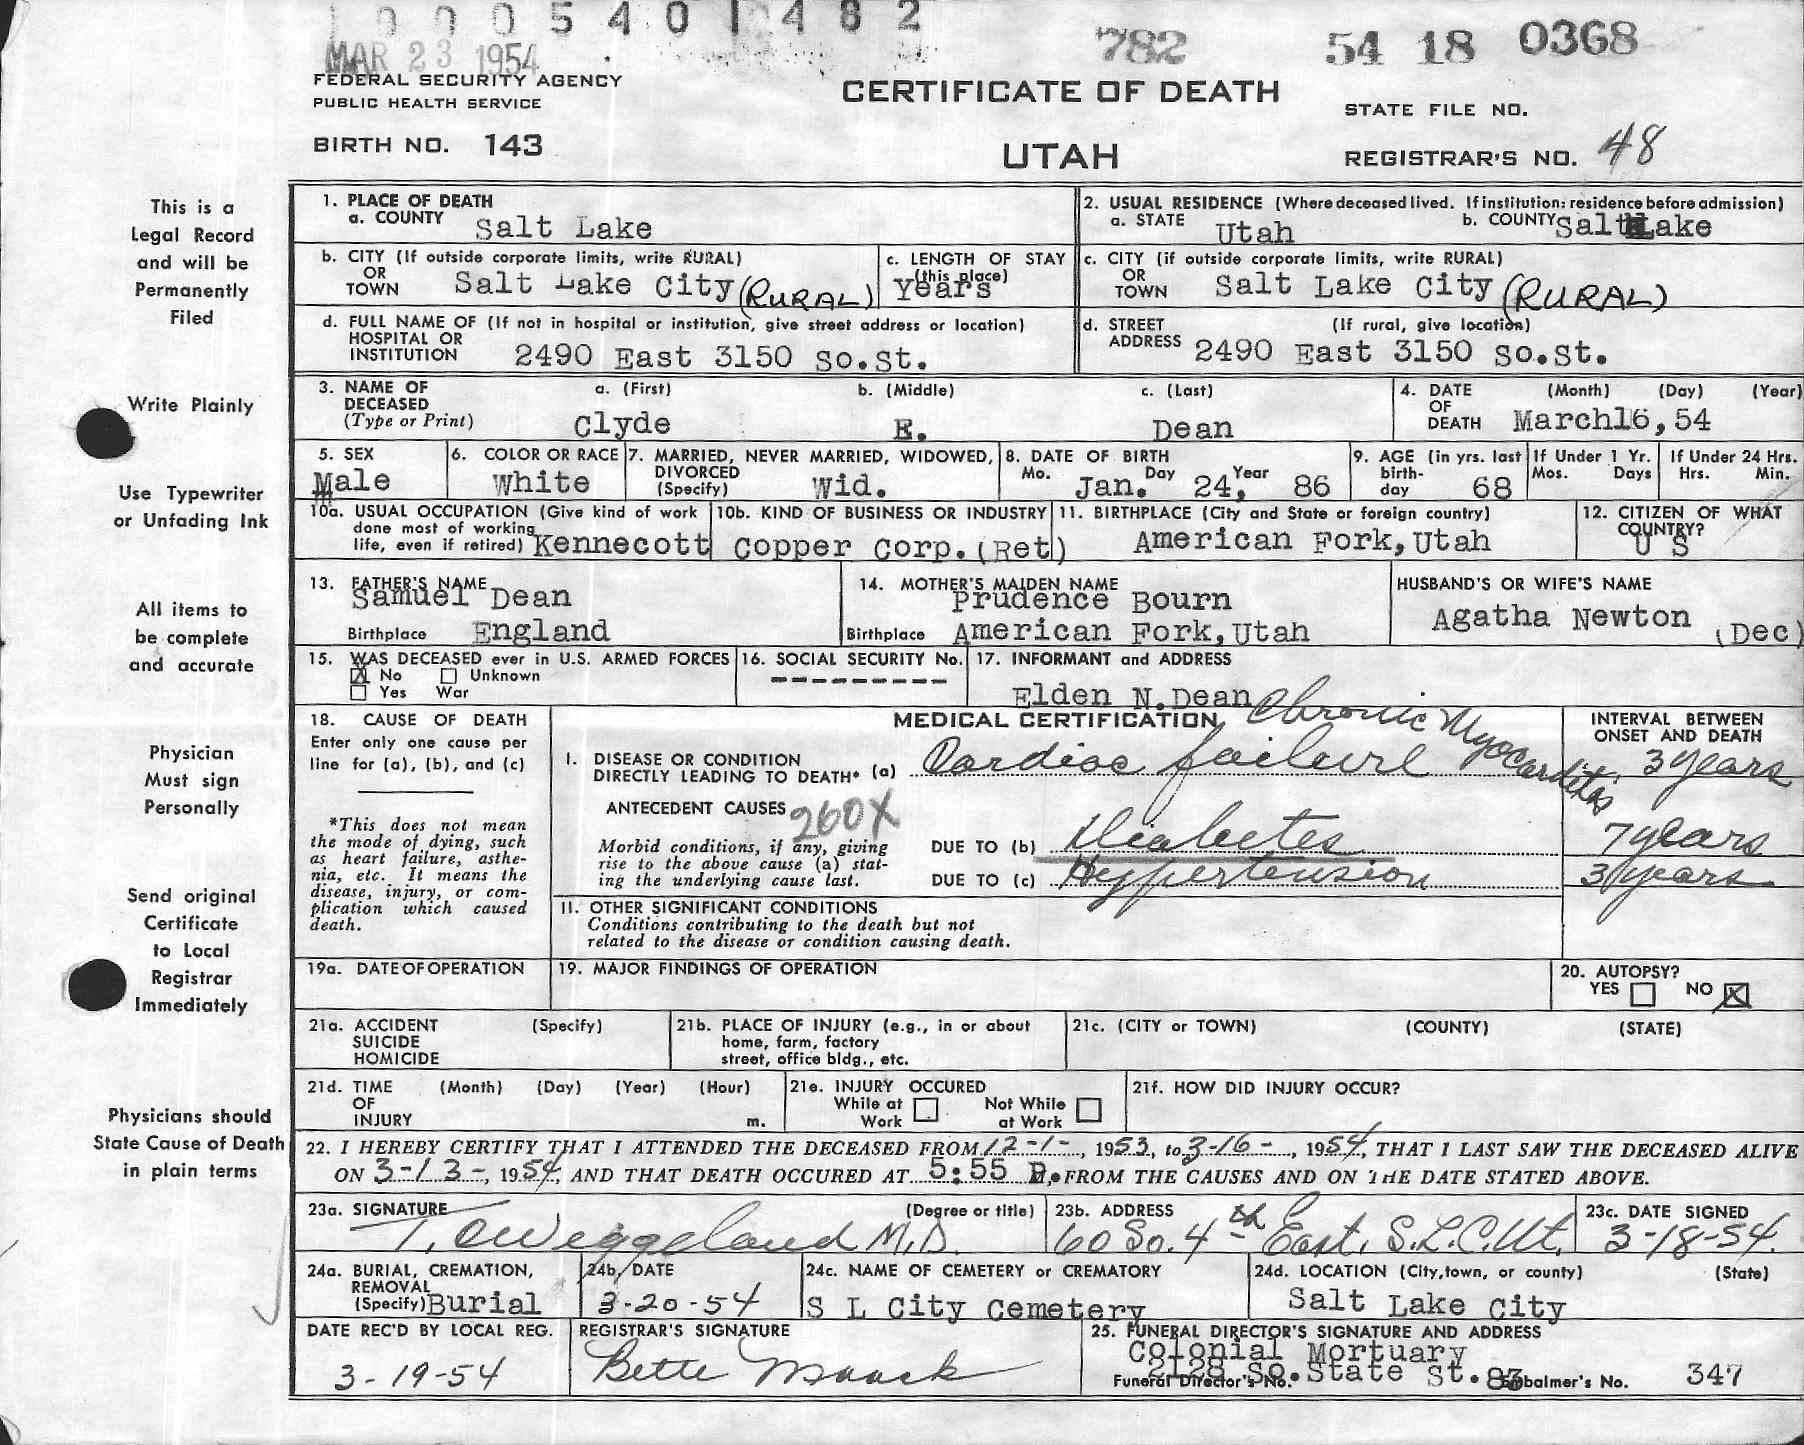 1 0 0 0 5 4 0 1 4 8 2
MAR 23 1954
782 54 18 0368
FEDERAL SECURITY AGENCY
PUBLIC HEALTH SERVICE
BIRTH NO. 143
CERTIFICATE OF DEATH
UTAH
STATE FILE NO.
REGISTRAR'S NO. 48
This is a
Legal Record
and will be
Permanently
Filed
Write Plainly
Use Typewriter
or Unfading Ink
All items to
be complete
and accurate
Physician
Must sign
Personally
Send original
Certificate
to Local
Registrar
Immediately
Physicians should
State Cause of Death
in plain terms
1. PLACE OF DEATH
a. COUNTY Salt Lake
2. USUAL RESIDENCE (Where deceased lived. If institution: residence before admission)
a. STATE Utah b. COUNTY Salt Lake
b. CITY (If outside corporate limits, write RURAL)
OR
TOWN Salt Lake City (RURAL)
c. LENGTH OF STAY
(this place)
Years
c. CITY (if outside corporate limits, write RURAL)
OR
TOWN Salt Lake City (RURAL)
d. FULL NAME OF (If not in hospital or institution, give street address or location)
HOSPITAL OR
INSTITUTION 2490 East 3150 So.St.
d. STREET (If rural, give location)
ADDRESS 2490 East 3150 So.St.
3. NAME OF a. (First) b. (Middle) c. (Last)
DECEASED
(Type or Print) Clyde E. Dean
4. DATE (Month) (Day) (Year)
OF
DEATH March16,54
5. SEX
Male
6. COLOR OR RACE
White
7. MARRIED, NEVER MARRIED, WIDOWED,
DIVORCED
(Specify) Wid.
8. DATE OF BIRTH
Mo. Day Year
Jan. 24, 86
9. AGE (in yrs. last
birth-
day 68
If Under 1 Yr.
Mos. Days
If Under 24 Hrs.
Hrs. Min.
10a. USUAL OCCUPATION (Give kind of work
done most of working
life, even if retired) Kennecott
10b. KIND OF BUSINESS OR INDUSTRY
Copper Corp.(Ret)
11. BIRTHPLACE (City and State or foreign country)
American Fork,Utah
12. CITIZEN OF WHAT
COUNTRY?
U S
13. FATHER'S NAME
Samuel Dean
Birthplace England
14. MOTHER'S MAIDEN NAME
Prudence Bourn
Birthplace American Fork,Utah
HUSBAND'S OR WIFE'S NAME
Agatha Newton (Dec)
15. WAS DECEASED ever in U.S. ARMED FORCES
No Unknown
Yes War
16. SOCIAL SECURITY No.
---------
17. INFORMANT and ADDRESS
Elden N.Dean
18. CAUSE OF DEATH
Enter only one cause per
line for (a), (b), and (c)
*This does not mean
the mode of dying, such
as heart failure, asthe-
nia, etc. It means the
disease, injury, or com-
plication which caused
death.
MEDICAL CERTIFICATION
INTERVAL BETWEEN
ONSET AND DEATH
Chronic Myocarditis
I. DISEASE OR CONDITION
DIRECTLY LEADING TO DEATH* (a) Cardiac failure 3 years
ANTECEDENT CAUSES 260X
Morbid conditions, if any, giving
rise to the above cause (a) stat-
ing the underlying cause last.
DUE TO (b) Diabetes 7 years
DUE TO (c) Hypertension 3 years
II. OTHER SIGNIFICANT CONDITIONS
Conditions contributing to the death but not
related to the disease or condition causing death.
19a. DATE OF OPERATION
19. MAJOR FINDINGS OF OPERATION
20. AUTOPSY?
YES NO
21a. ACCIDENT (Specify)
SUICIDE
HOMICIDE
21b. PLACE OF INJURY (e.g., in or about
home, farm, factory
street, office bldg., etc.
21c. (CITY or TOWN) (COUNTY) (STATE)
21d. TIME (Month) (Day) (Year) (Hour)
OF
INJURY m.
21e. INJURY OCCURED
While at Not While
Work at Work
21f. HOW DID INJURY OCCUR?
22. I HEREBY CERTIFY THAT I ATTENDED THE DECEASED FROM 12-1-, 1953, to 3-16-, 1954, THAT I LAST SAW THE DECEASED ALIVE
ON 3-13-, 1954, AND THAT DEATH OCCURED AT 5:55 P. FROM THE CAUSES AND ON THE DATE STATED ABOVE.
23a. SIGNATURE (Degree or title)
T. C. Weggeland M.D.
23b. ADDRESS
60 So. 4th East, S.L.C. Ut.
23c. DATE SIGNED
3-18-54.
24a. BURIAL, CREMATION,
REMOVAL
(Specify) Burial
24b. DATE
3-20-54
24c. NAME OF CEMETERY or CREMATORY
S L City Cemetery
24d. LOCATION (City, town, or county) (State)
Salt Lake City
DATE REC'D BY LOCAL REG.
3-19-54
REGISTRAR'S SIGNATURE
Bette Maack
25. FUNERAL DIRECTOR'S SIGNATURE AND ADDRESS
Colonial Mortuary
2128 So.State St.
Funeral Director's No. 83 Embalmer's No. 347